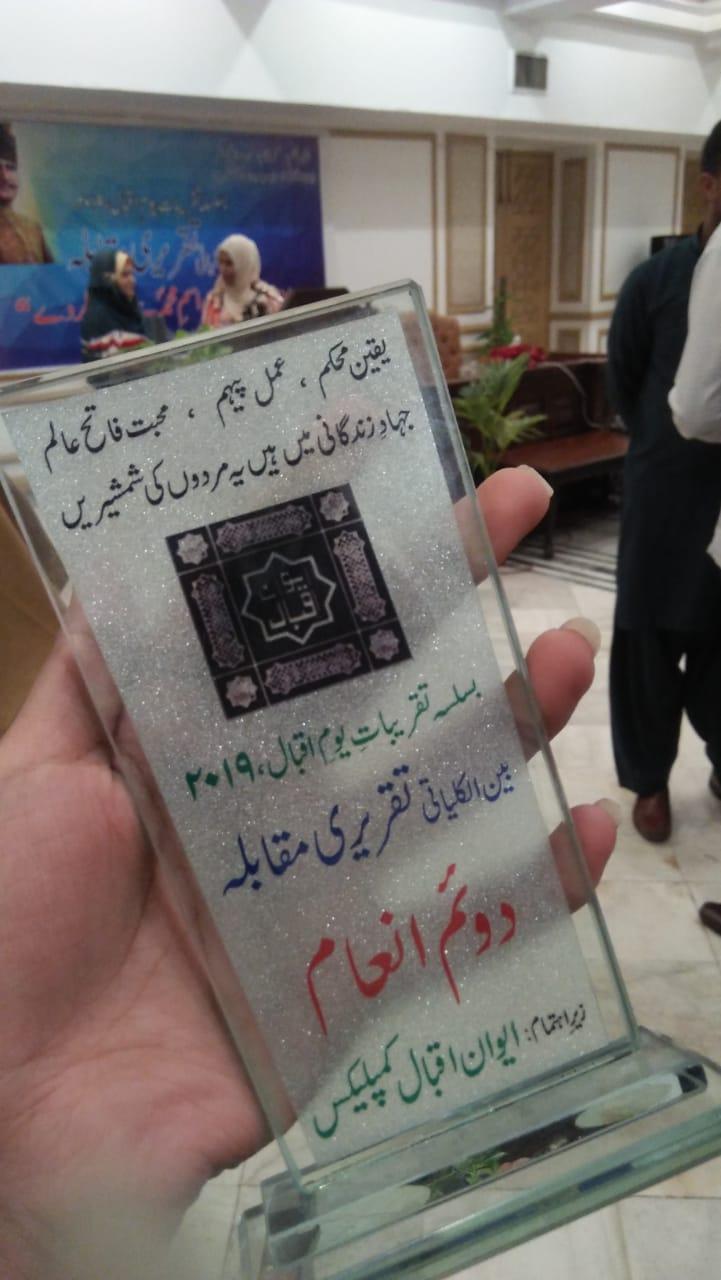 بسلسلہ تقریبات یوم اقبال
تقریری مقابلہ
یقین محکم ، عمل پیہم ، محبت فاتح عالم
جہادِ زندگانی میں ہیں یہ مردوں کی شمشیریں
ایوان
اقبال
بسلسہ تقریباتِ یومِ اقبال، ۲۰۱۹
بین الکلیاتی تقریری مقابلہ
دوئم انعام
زیرِ اہتمام: ایوان اقبال کمپلیکس